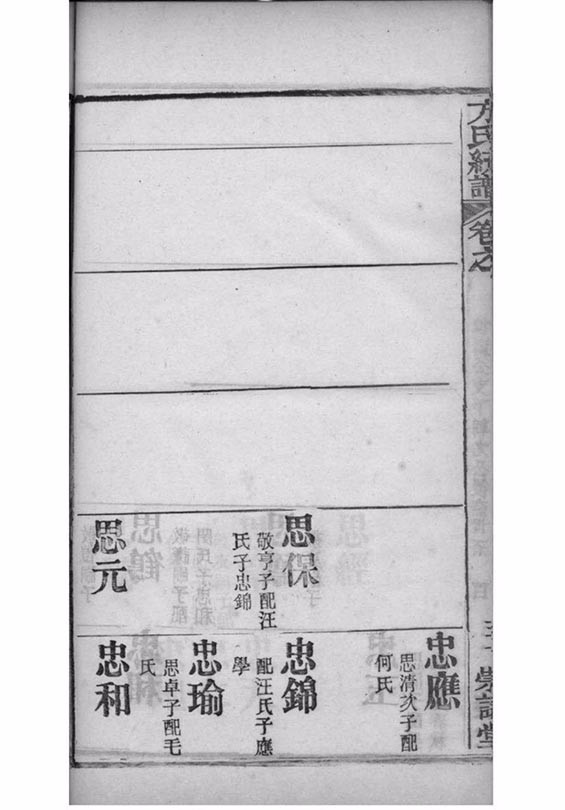 方氏統譜
卷之
思保
敬亨子配汪
氏子忠錦
思元
忠應
思清次子配
何氏
忠錦
配汪氏子應
學
忠瑜
思卓子配毛
氏
忠和